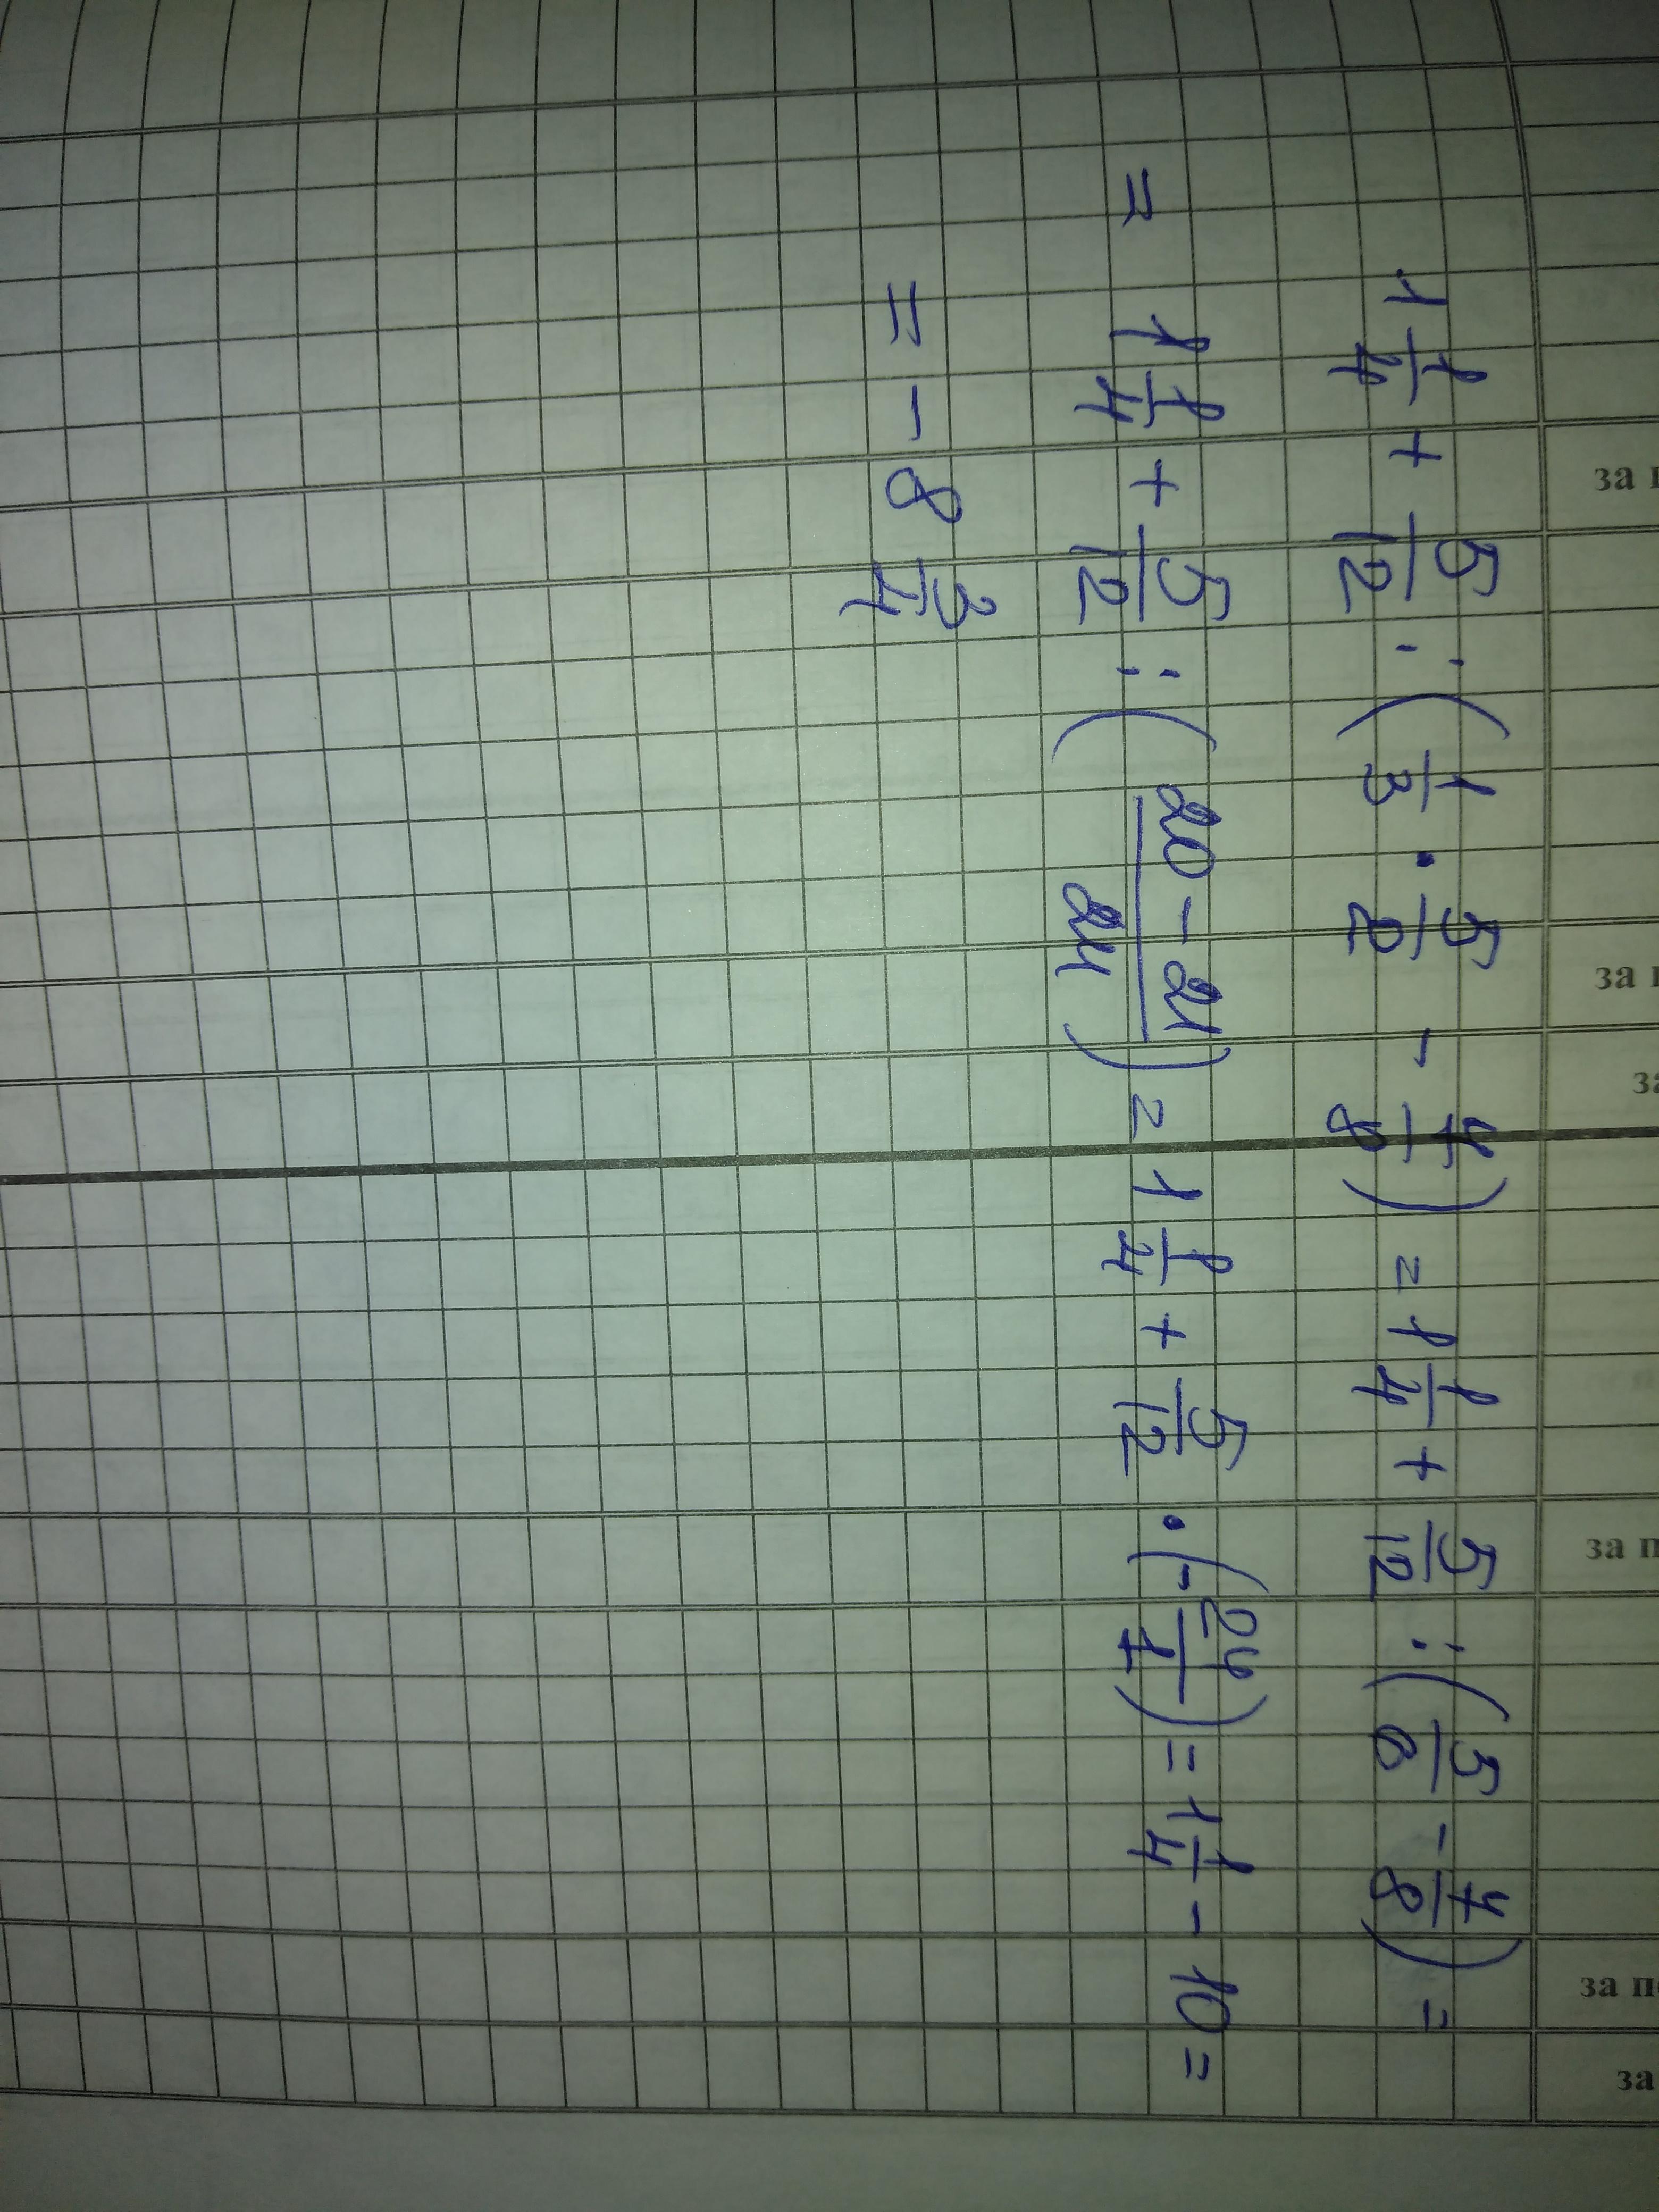 1 1/4 + 5/12 : (1/3 · 5/2 - 7/8) = 1 1/4 + 5/12 : (5/6 - 7/8) =
= 1 1/4 + 5/12 : (20 - 21/24) = 1 1/4 + 5/12 · (- 24/1) = 1 1/4 - 10 =
= - 8 3/4
за
за
за
за
за
за